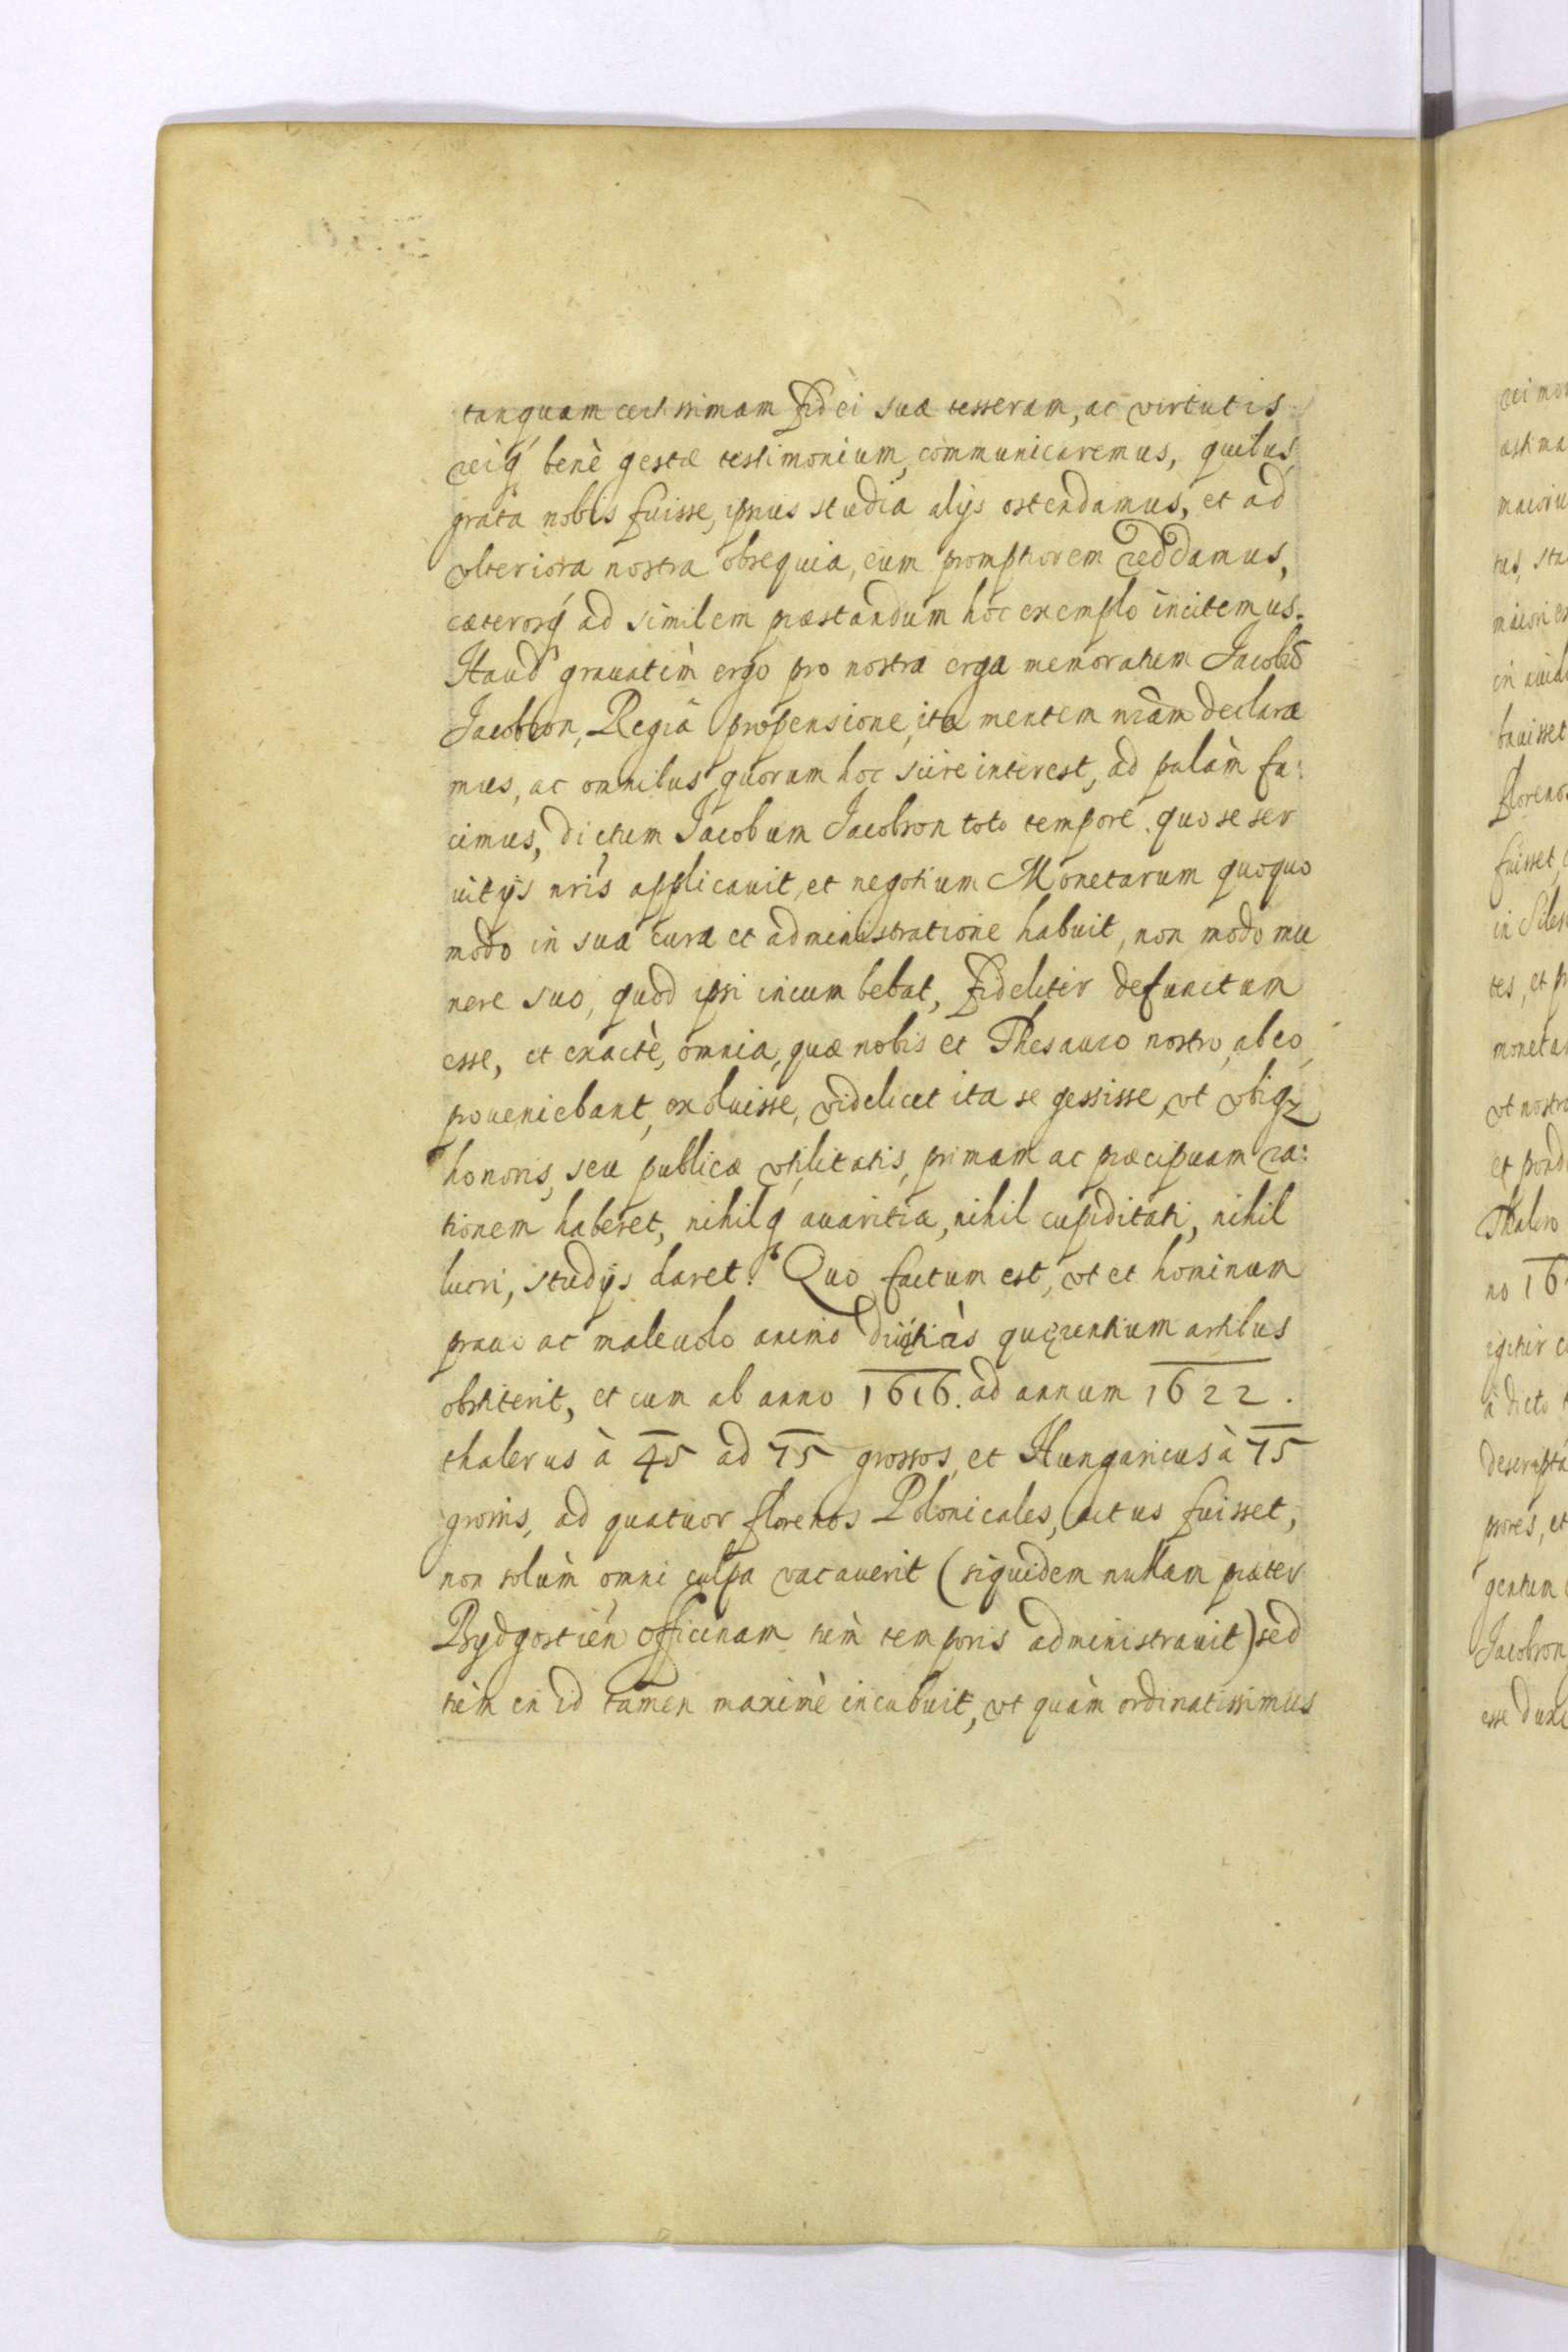 tanquam certissimam fidei suæ tesseram, ac virtutis
reiq́ benè gestæ testimonium, communicaremus, quibus
grata nobis fuisse, ipsius studia alijs ostendamus, et ad
vlteriora nostra obsequia, eum promptiorem reddamus,
cæterosq́ ad similem præstandum hoc exemplo incitemus.
Haud grauatim ergo pro nostra erga memoratum Jacobū
Jacobson, Regiâ propensione, ita mentem nr̄am declara
mus, ac omnibus quorum hoc scire interest, ad palàm fa:
cimus, dictum Jacobum Jacobson toto tempore quo se ser
uitijs nr̄is applicauit, et negotium Monetarum quoquo
modo in sua cura et administratione habuit, non modo mu
nere suo, quod ipsi incumbebat, fideliter defunctum
esse, et exactè, omnia, quæ nobis et Thesauro nostro, ab eo
proueniebant, exoluisse, videlicet ita se gessisse, vt vbiq́;
honoris, seu publicæ vtilitatis, primam ac præcipuam ra:
tionem haberet, nihilq́ auaritiæ, nihil cupiditati, nihil
lucri, studijs daret. Quo factum est, vt et hominum
prauo ac maleuolo animo diuitias quærentium artibus
obstiterit, et cum ab anno 1616. ad annum 1622.
thalerus à 45 ad 75 grossos, et Hungaricus à 75
grossis, ad quatuor florenos Polonicales, auctus fuisset,
non solùm omni culpa vacauerit (siquidem nullam præter
Bydgostień officinam tùm temporis administrauit) sed
tùm in id tamen maximè incubuit, vt quàm ordinatissimus